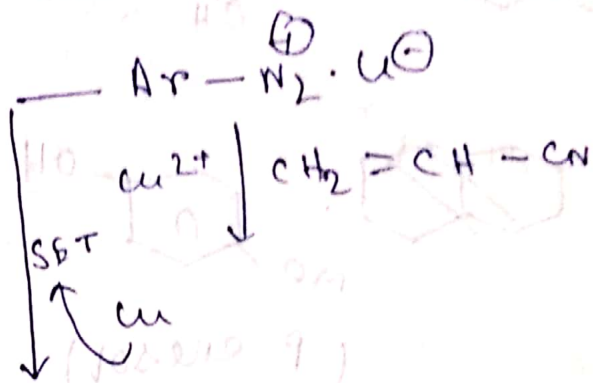 Ar – N₂⊕ . Cl⊖
Cu²⁺ CH₂ = CH – CN
SET
Cu